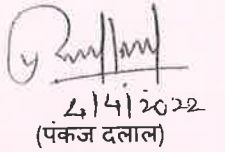 4|4|2022
(पंकज दलाल)